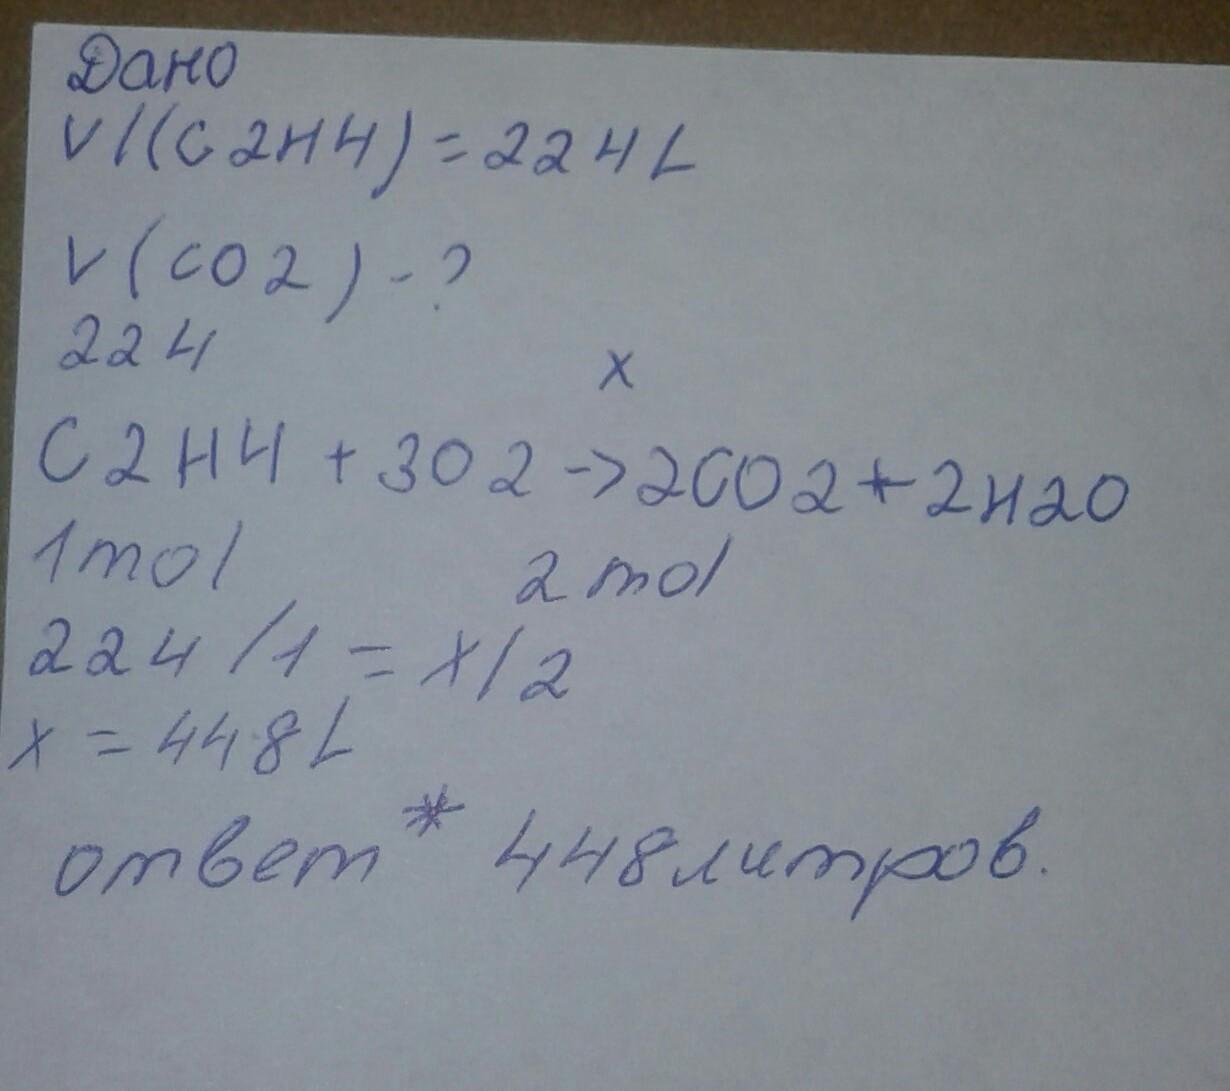 Дано
V/(C2H4)=224L
V(CO2)-?
224
x
C2H4+3O2->2CO2+2H2O
1mol 2mol
224/1=x/2
x=448L
ответ* 448литров.